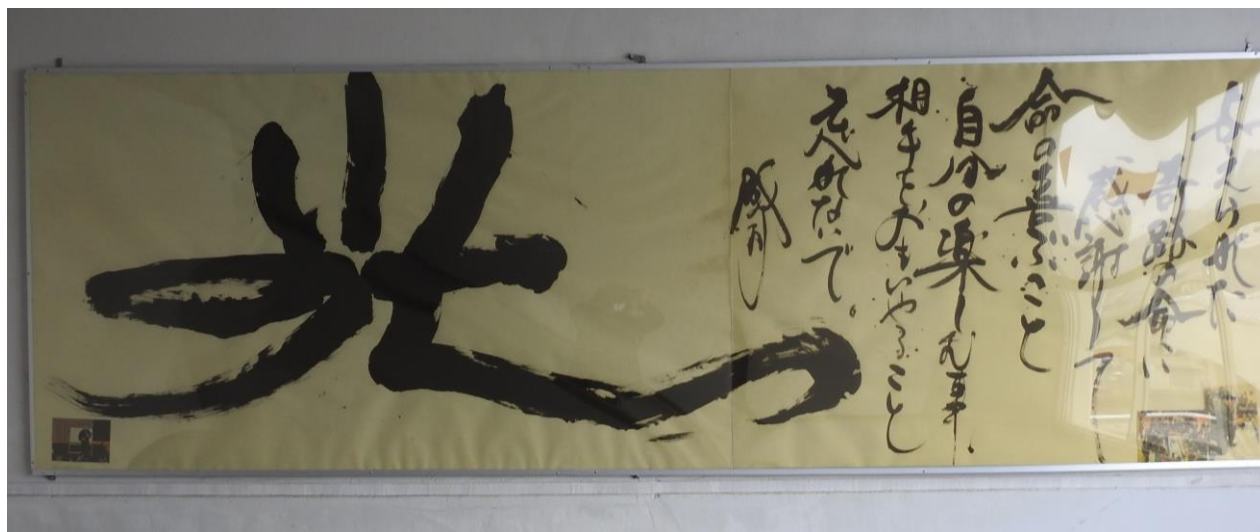 与えられた
奇跡の命に
感謝して
命の喜ぶこと
自分の楽しむ事、
相手をおもいやること
忘れないで。
光